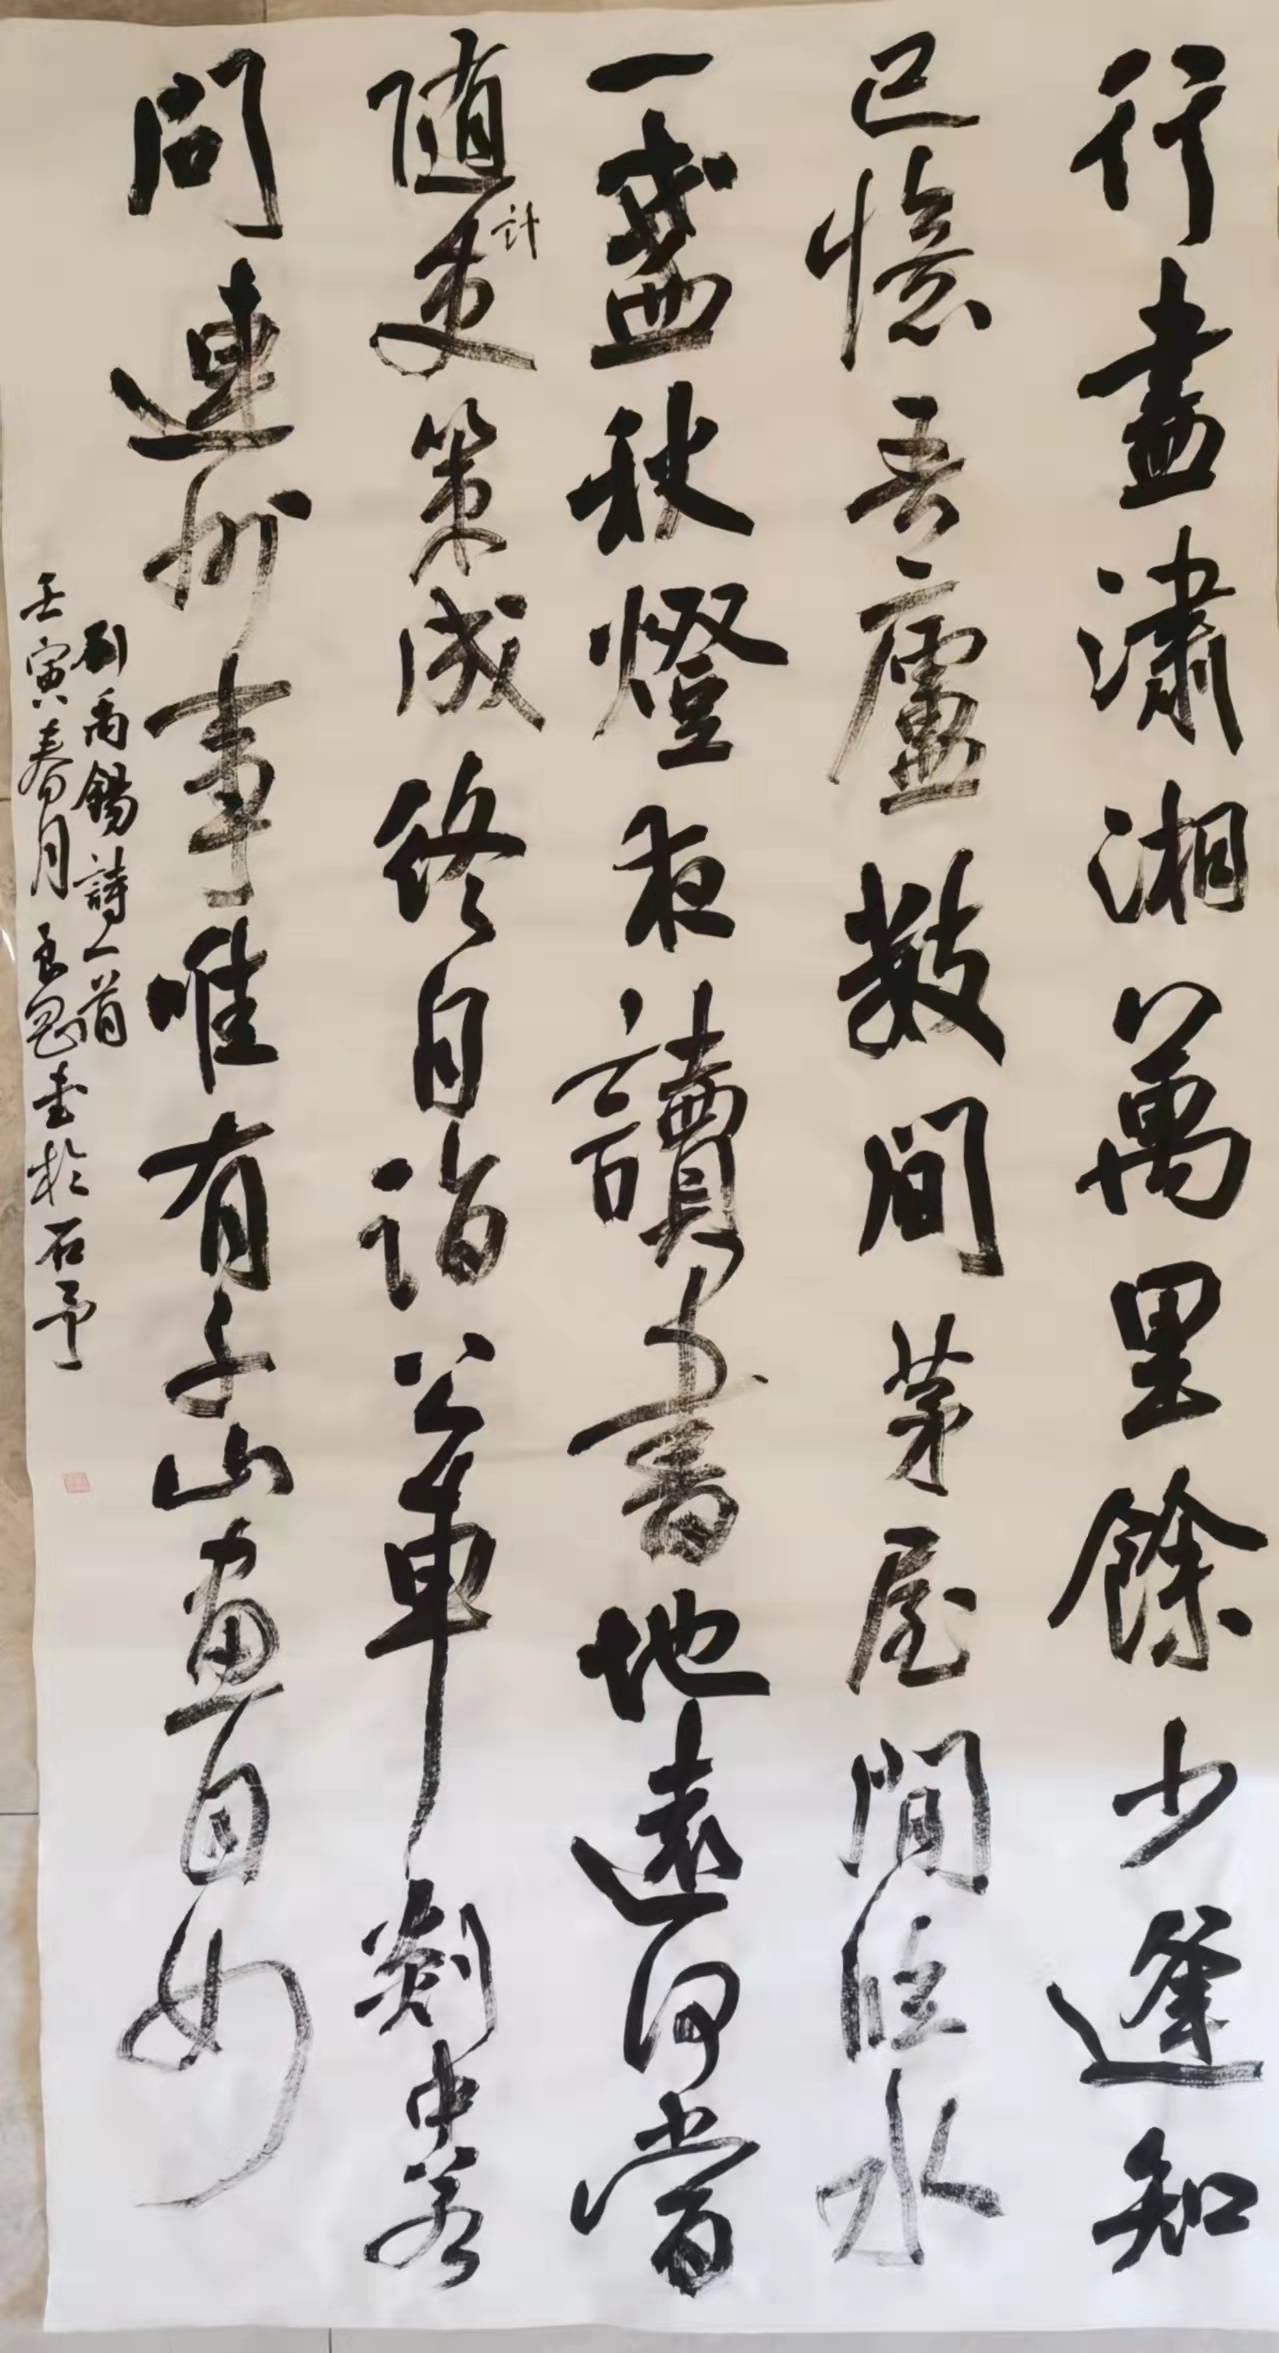 行盡瀟湘萬里餘少逢知
己憶吾廬數間茅屋閒臨水
一盞秋燈夜讀書地遠何當
随計吏策成終自詣公車剡中若
問連州事唯有千山畫自如
刘禹錫詩一首
壬寅春月 書於石予